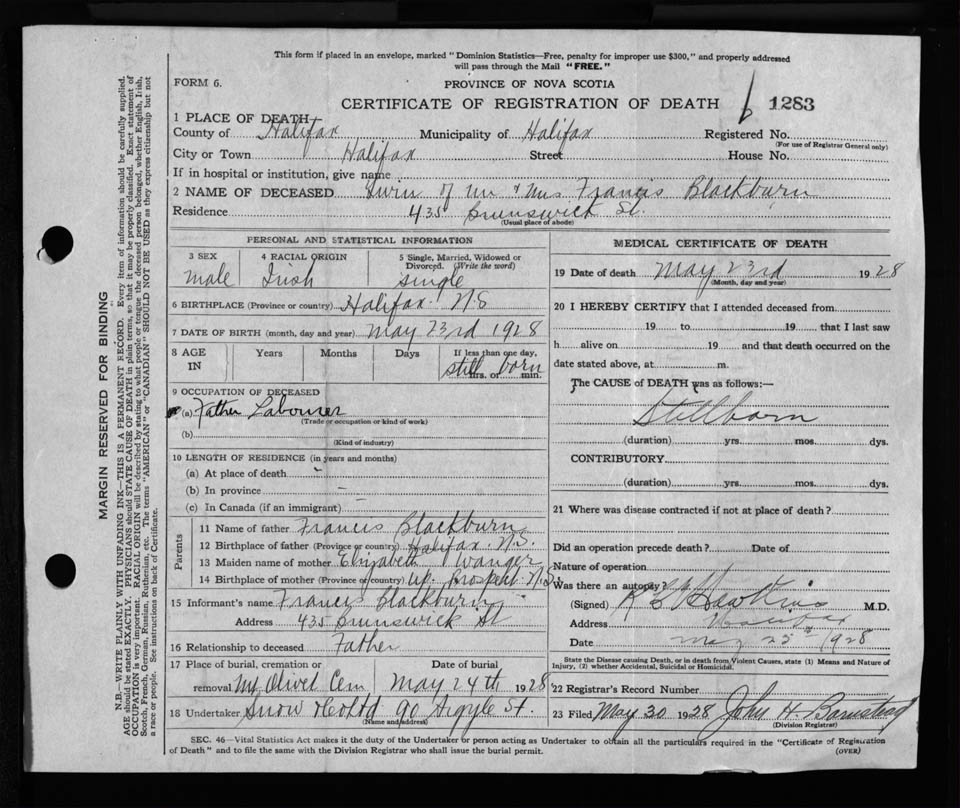 This form if placed in an envelope, marked "Dominion Statistics—Free, penalty for improper use $300," and properly addressed
will pass through the Mail "FREE."
FORM 6.
PROVINCE OF NOVA SCOTIA
CERTIFICATE OF REGISTRATION OF DEATH 1283
1 PLACE OF DEATH—
County of Halifax Municipality of Halifax Registered No.
(For use of Registrar General only)
City or Town Halifax Street House No.
If in hospital or institution, give name
2 NAME OF DECEASED of Mr & Mrs Francis Blackburn
Residence 435 Brunswick St.
(Usual place of abode)
MARGIN RESERVED FOR BINDING
N.B.—WRITE PLAINLY WITH UNFADING INK—THIS IS A PERMANENT RECORD. Every item of information should be carefully supplied.
AGE should be stated EXACTLY. PHYSICIANS should STATE CAUSE OF DEATH in plain terms, so that it may be properly classified. Exact statement of
OCCUPATION is very important. RACIAL ORIGIN will be described by stating to what people or tongue the deceased person belonged, whether English, Irish,
Scotch, French, German, Russian, Ruthenian, etc. The terms "AMERICAN" or "CANADIAN" SHOULD NOT BE USED as they express citizenship but not
a race or people. See instructions on back of Certificate.
PERSONAL AND STATISTICAL INFORMATION
3 SEX 4 RACIAL ORIGIN 5 Single, Married, Widowed or
Divorced. (Write the word)
male Irish single
6 BIRTHPLACE (Province or country) Halifax N.S
7 DATE OF BIRTH (month, day and year) May 23rd 1928
8 AGE IN Years Months Days If less than one day,
still born
hrs. or min.
9 OCCUPATION OF DECEASED
(a) Father Labourer
(Trade or occupation or kind of work)
(b)
(Kind of industry)
10 LENGTH OF RESIDENCE (in years and months)
(a) At place of death
(b) In province —
(c) In Canada (if an immigrant) —
Parents
11 Name of father Francis Blackburn
12 Birthplace of father (Province or country) Halifax N.S.
13 Maiden name of mother Elizabeth
14 Birthplace of mother (Province or country) Up. Prospect N.S.
15 Informant's name Francis Blackburn
Address 435 Brunswick St
16 Relationship to deceased Father
17 Place of burial, cremation or Date of burial
removal Mt Olivet Cem May 24th 1928
18 Undertaker Snow & Co Ltd 90 Argyle St.
(Name and address)
MEDICAL CERTIFICATE OF DEATH
19 Date of death May 23rd 1928
(Month, day and year)
20 I HEREBY CERTIFY that I attended deceased from
19 to 19 that I last saw
h alive on 19 and that death occurred on the
date stated above, at m.
The CAUSE of DEATH was as follows:—
Stillborn
(duration) yrs. mos. dys.
CONTRIBUTORY
(duration) yrs. mos. dys.
21 Where was disease contracted if not at place of death?
Did an operation precede death? Date of
Nature of operation
Was there an autopsy?
(Signed) Hawkins M.D.
Address Halifax
Date May 25th 1928
State the Disease causing Death, or in death from Violent Causes, state (1) Means and Nature of
Injury, (2) whether Accidental, Suicidal or Homicidal.
22 Registrar's Record Number
23 Filed May 30 1928 John H. Barnstead
(Division Registrar)
SEC. 46—Vital Statistics Act makes it the duty of the Undertaker or person acting as Undertaker to obtain all the particulars required in the "Certificate of Registration
of Death" and to file the same with the Division Registrar who shall issue the burial permit.
(OVER)